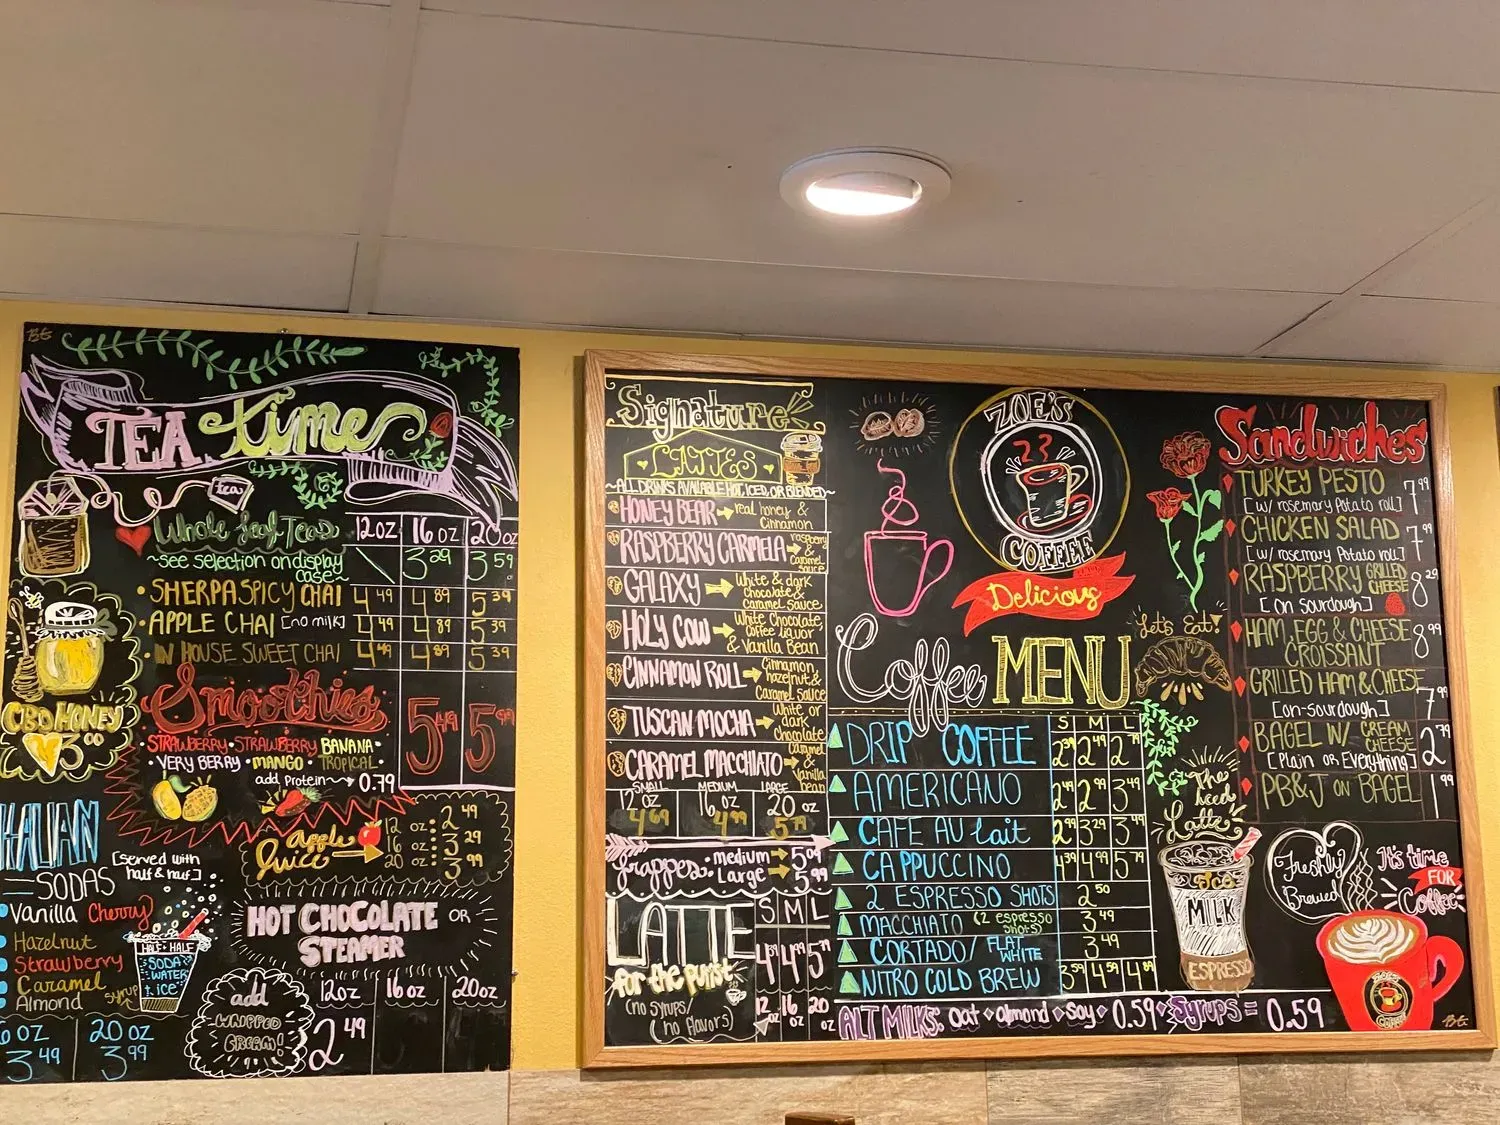 TEA time
tea
Whole Leaf Teas 12oz 16oz 20oz
~see selection on display case~ 3.29 3.59
• SHERPA SPICY CHAI 4.49 4.89 5.39
• APPLE CHAI [no milk] 4.49 4.89 5.39
• IN HOUSE SWEET CHAI 4.49 4.89 5.39
CBD HONEY
Smoothies 5.49 5.99
STRAWBERRY • STRAWBERRY BANANA •
VERY BERRY • MANGO • TROPICAL
add protein 0.79
apple Juice
12 oz 2.49
16 oz 3.29
20 oz 3.99
ITALIAN
SODAS
[served with half & half]
Vanilla Cherry
Hazelnut
Strawberry
Caramel
Almond
HALF + HALF
SODA WATER
ICE
syrup
6 oz 20 oz
3.49 3.99
HOT CHOCOLATE OR
STEAMER
add
WHIPPED
CREAM!
12oz 16oz 20oz
2.49
Signature
LATTES
~ALL DRINKS AVAILABLE HOT, ICED, OR BLENDED~
HONEY BEAR real honey & Cinnamon
RASPBERRY CARMELA raspberry & Caramel sauce
GALAXY White & dark Chocolate & Caramel sauce
HOLY COW White Chocolate, Coffee liquor & Vanilla Bean
CINNAMON ROLL Cinnamon, hazelnut & Caramel sauce
TUSCAN MOCHA White or dark Chocolate
CARAMEL MACCHIATO Caramel & Vanilla bean
SMALL MEDIUM LARGE
12 oz 16 oz 20 oz
4.69 4.99 5.79
frappes: medium 5.09
Large 5.99
LATTE S M L
for the purist 4.39 4.99 5.79
(no syrups/
(no flavors)
12 oz 16 oz 20 oz
ZOE'S
23
COFFEE
Delicious
Coffee MENU
S M L
DRIP COFFEE 2.39 2.49 2.79
AMERICANO 2.49 2.99 3.49
CAFE AU lait 2.99 3.29 3.49
CAPPUCCINO 4.39 4.99 5.79
2 ESPRESSO SHOTS 2.50
MACCHIATO (2 espresso shots) 3.49
CORTADO/ FLAT WHITE 3.49
NITRO COLD BREW 3.59 4.59 4.89
ALT MILKS: oat • almond • soy • 0.59 • Syrups = 0.59
Let's Eat!
The iced Latte
ICE
MILK
ESPRESSO
Sandwiches
TURKEY PESTO 7.99
[w/ rosemary Potato roll]
CHICKEN SALAD 7.99
[w/ rosemary Potato roll]
RASPBERRY GRILLED CHEESE 8.29
[On Sourdough]
HAM, EGG & CHEESE 8.99
CROISSANT
GRILLED HAM & CHEESE 7.99
[on-sourdough]
BAGEL W/ CREAM CHEESE 2.79
[Plain or Everything]
PB&J ON BAGEL 1.99
Freshly
Brewed
It's time
FOR
Coffee
COFFEE